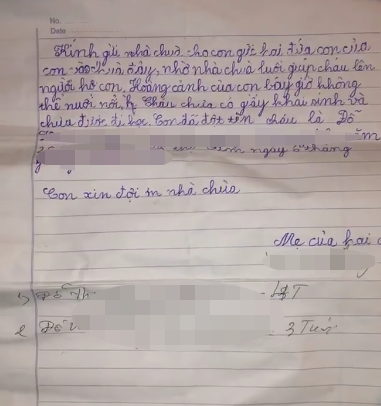 No.
Date
Kính gửi nhà chùa cho con gửi hai đứa con của
con vào chùa đây, nhờ nhà chùa nuôi giúp cháu lên
người hộ con, Hoàng cảnh của con bây giờ không
thể nuôi nổi, Cháu chưa có giấy khai sinh và
chưa được đi học. Con đã đặt tên cháu là Đỗ
ngày 5 tháng
Con xin đội ơn nhà chùa
Mẹ của hai
1) Đỗ Th
2 Đỗ 3 Tuổi